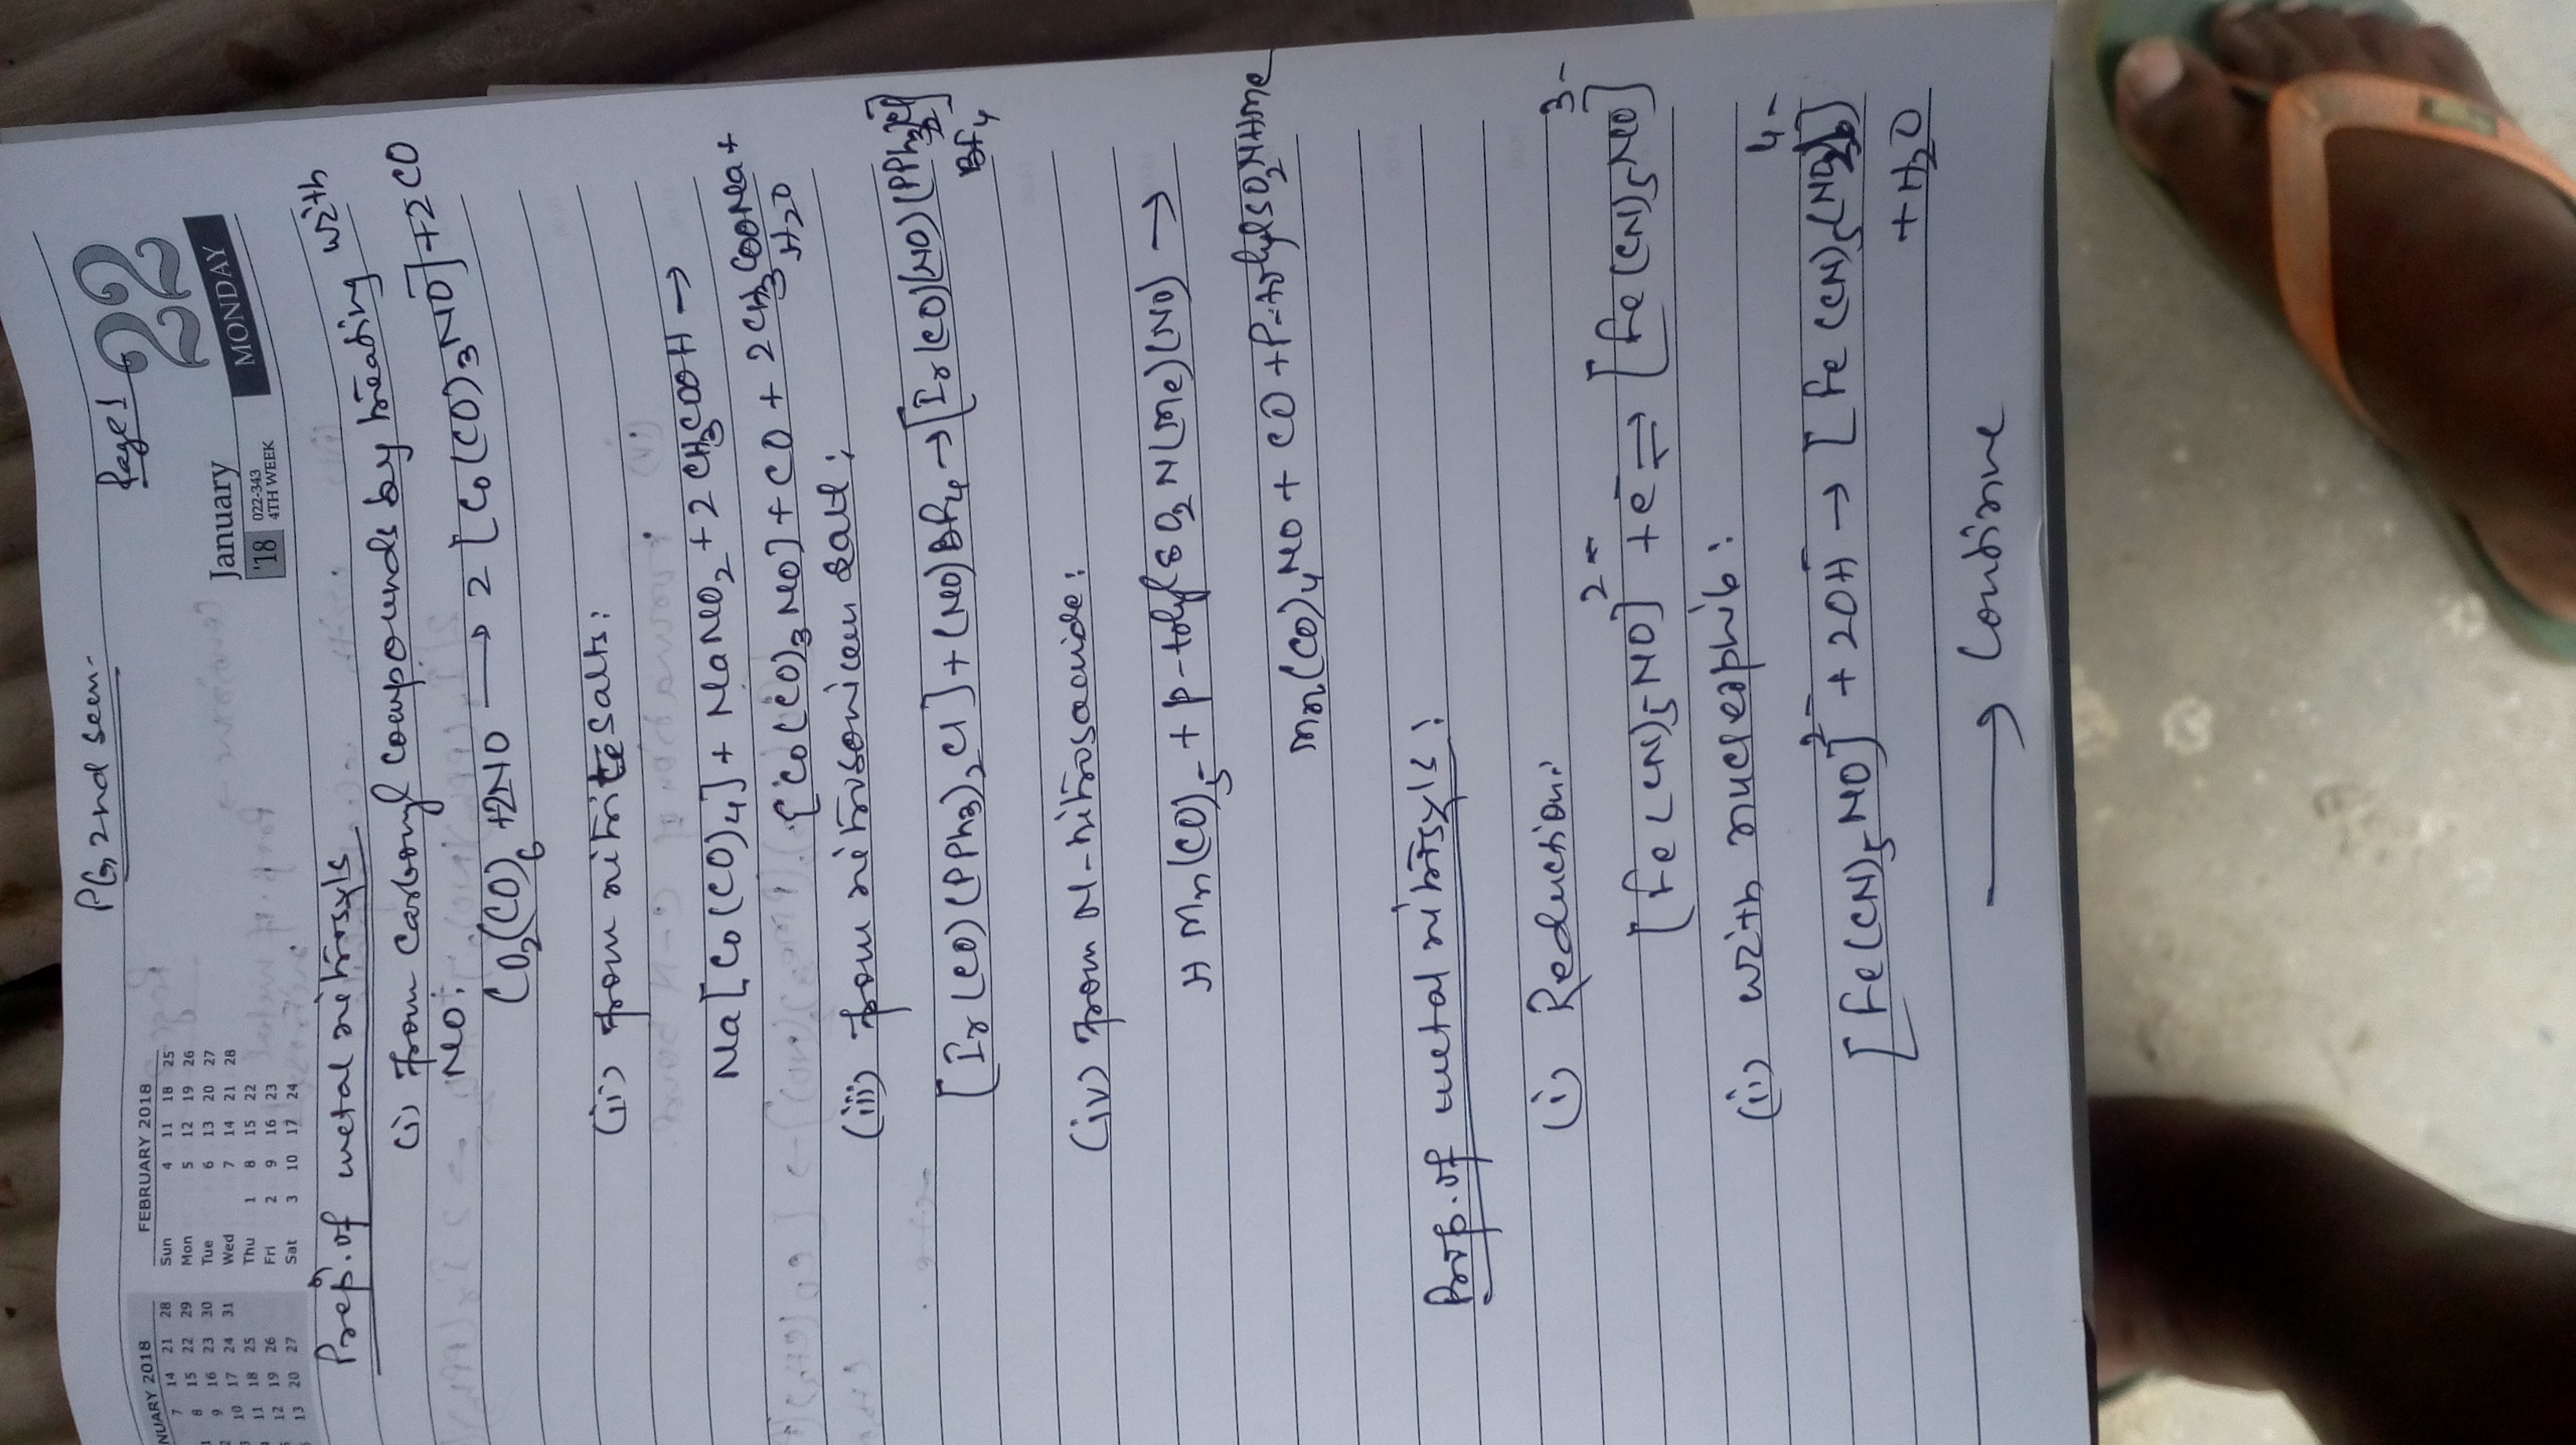 PG 2nd sem.
Page 1
22
MONDAY
January
'18 022-343
4TH WEEK
FEBRUARY 2018
Sun 4 11 18 25
Mon 5 12 19 26
Tue 6 13 20 27
Wed 7 14 21 28
Thu 1 8 15 22
Fri 2 9 16 23
Sat 3 10 17 24
NUARY 2018
7 14 21 28
1 8 15 22 29
2 9 16 23 30
3 10 17 24 31
4 11 18 25
5 12 19 26
6 13 20 27
Prep. of metal nitrosyls
(i) From Carbonyl compounds by treating with
NO:
CO2(CO)6 +2NO → 2 [Co(CO)3NO] +2CO
(ii) from nitrite salts:
Na[Co(CO)4] + NaNO2 + 2CH3COOH →
[Co(CO)3NO] + CO + 2CH3COONa +
H2O
(iii) from nitrosonium salt:
[Ir(CO)(PPh3)2Cl] + (NO)BF4 → [Ir(CO)(NO)(PPh3)2Cl]
BF4
(iv) From N-nitrosamide:
H Mn(CO)5 + p-tolylSO2N(Me)(NO) →
Mn(CO)4NO + CO + P-tolylSO2NHMe
Prop. of metal nitrosyls:
(i) Reduction:
[Fe(CN)5NO]2- + e- ⇌ [Fe(CN)5NO]3-
(ii) with nucleophile:
[Fe(CN)5NO]2- + 2OH- → [Fe(CN)5(NO2)]4-
+ H2O
→ Continue